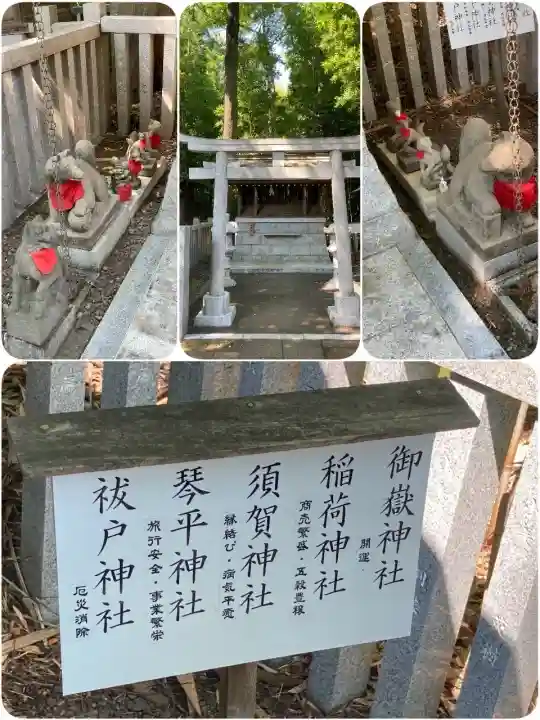 御嶽神社
開運
稲荷神社
商売繁盛・五穀豊穣
須賀神社
縁結び・病気平癒
琴平神社
旅行安全・事業繁栄
祓戸神社
厄災消除